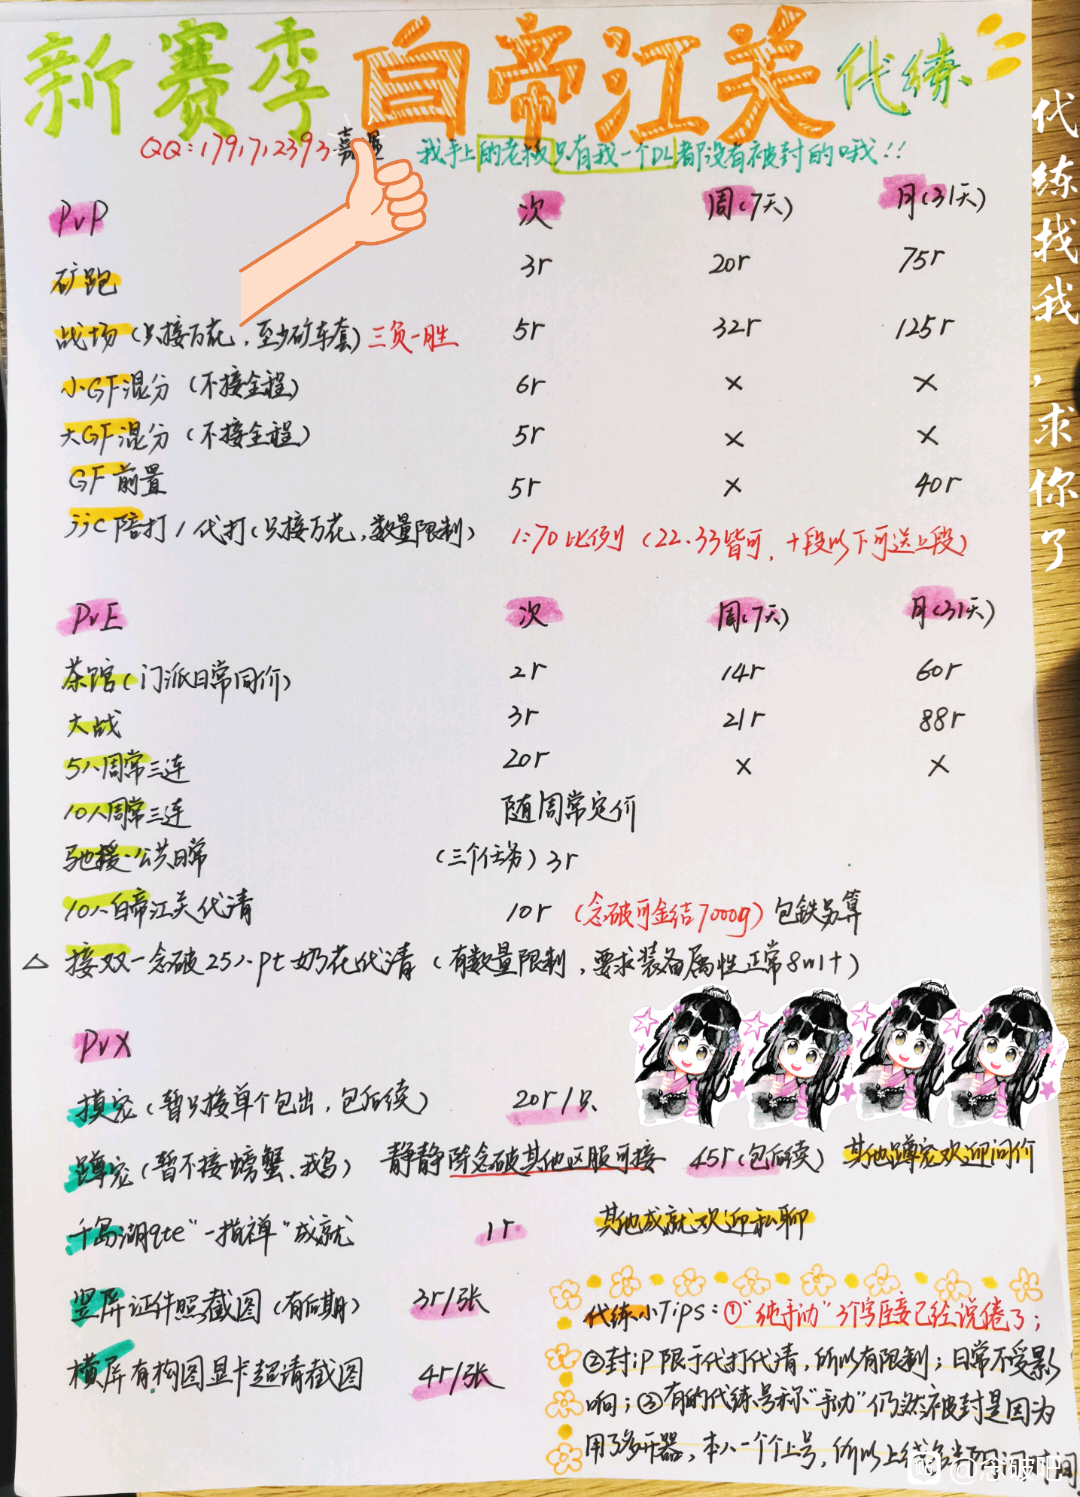 新赛季 白帝江关 代练
QQ:1791712393.嘉 我手上的老板只有我一个DL都没有被封的哦!!
PvP 次 周(7天) 月(31天)
矿跑 3r 20r 75r
战场(只接万花,至少矿车套)三负一胜 5r 32r 125r
小GF混分(不接全程) 6r × ×
大GF混分(不接全程) 5r × ×
GF前置 5r × 40r
JJC陪打/代打(只接万花,数量限制) 1:70比例(22.33皆可,十段以下可送上段)
PvE 次 周(7天) 月(31天)
茶馆(门派日常同价) 2r 14r 60r
大战 3r 21r 88r
5人周常三连 20r × ×
10人周常三连 随周常定价
驰援·公共日常 (三个任务)3r
10人白帝江关代清 10r (念破可金结7000g)包铁另算
△ 接双一念破25人pt奶花代清(有数量限制,要求装备属性正常8w1+)
PvX
摸宠(暂只接单个包出,包后续) 20r/只
蹲宠(暂不接螃蟹、鹅) 静静除念破其他区服可接 45r(包后续) 其他蹲宠欢迎问价
千岛湖qte"一指禅"成就 1r 其他成就欢迎私聊
竖屏证件照截图(有后期) 3r/张
横屏有构图显卡超清截图 4r/张
代练小Tips:①"纯手动"3个字我已经说倦了;
②封iP限于代打代清,所以有限制;日常不受影
响;③有的代练号称"手动"仍然被封是因为
用了多开器,本人一个个上号,所以上线
时间
代练找我,求你了
@念破吧